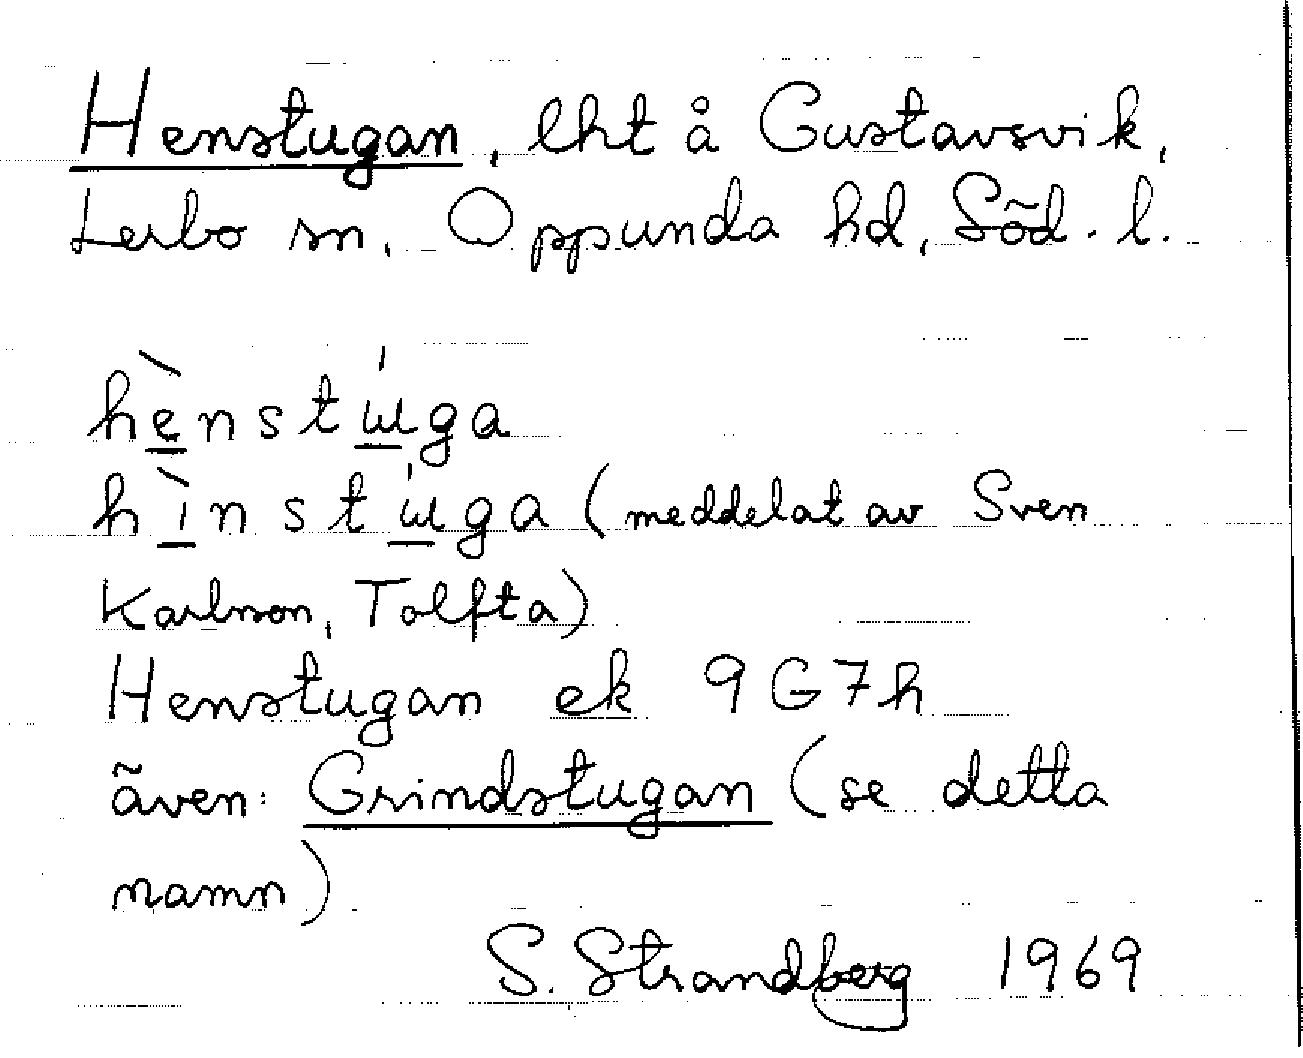 Henstugan, lht å Gustavsvik,
Lerbo sn, Oppunda hd, Söd. l.
hènstɯ́ga
hìnstɯ́ga (meddelat av Sven
Karlsson, Tolfta)
Henstugan ek 9G7h
även: Grindstugan (se detta
namn)
S. Strandberg 1969